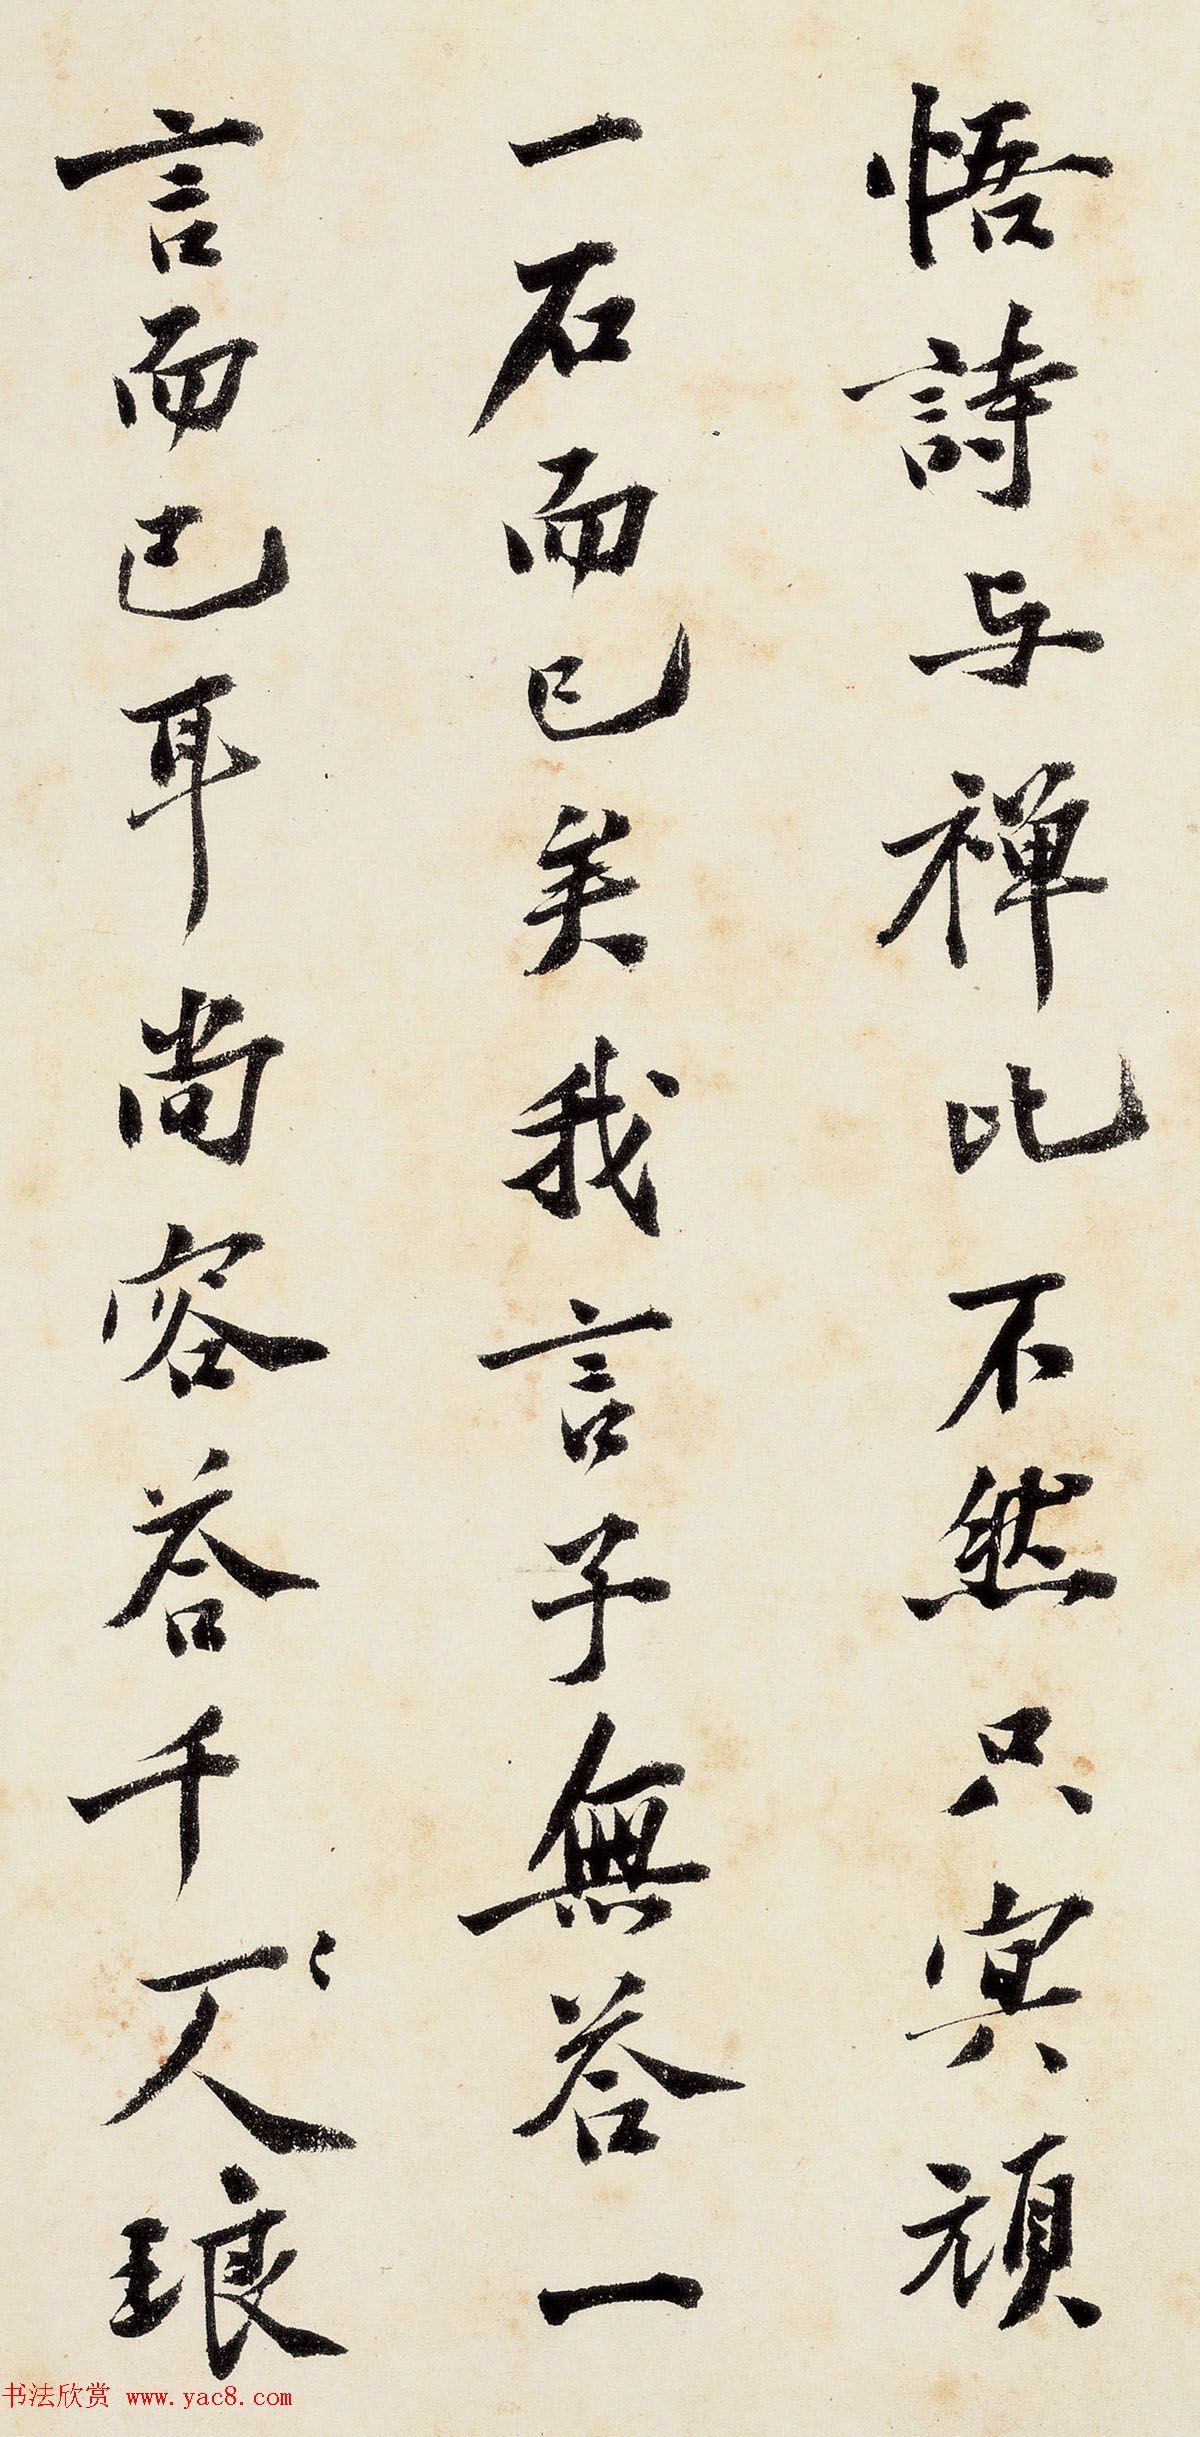 悟詩与禅比不然只冥頑
一石而已矣我言子無荅一
言而已耳尚容荅千萬人琅
书法欣赏 www.yac8.com